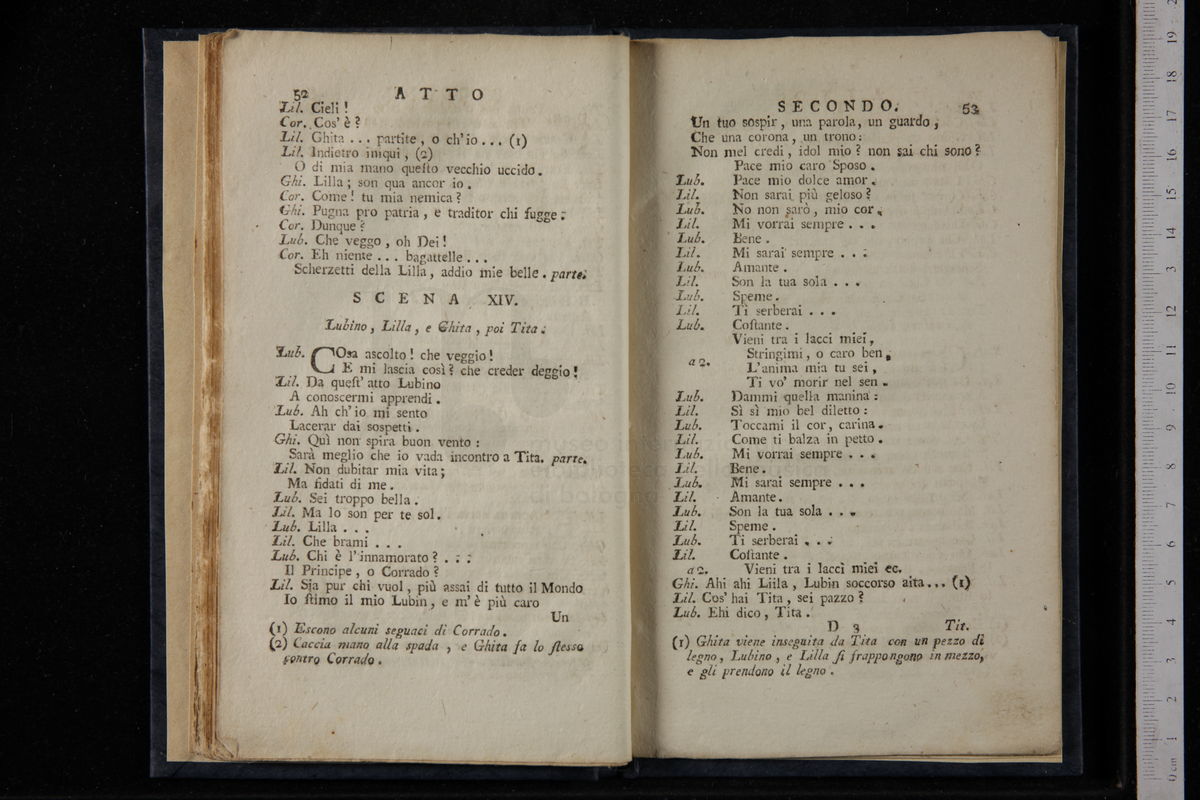 52 ATTO
Lil. Cieli !
Cor. Cos' è ?
Lil. Ghita . . . partite , o ch' io . . . (1)
Lil. Indietro iniqui , (2)
O di mia mano queſto vecchio uccido .
Ghi. Lilla ; son qua ancor io .
Cor. Come ! tu mia nemica ?
Ghi. Pugna pro patria , e traditor chi fugge .
Cor. Dunque ?
Lub. Che veggo , oh Dei !
Cor. Eh niente . . . bagattelle . . .
Scherzetti della Lilla , addio mie belle . parte.
SCENA XIV.
Lubino , Lilla , e Ghita , poi Tita .
Lub. COsa ascolto ! che veggio !
E mi lascia così ? che creder deggio !
Lil. Da queſt' atto Lubino
A conoscermi apprendi .
Lub. Ah ch' io mi sento
Lacerar dai sospetti .
Ghi. Quì non spira buon vento :
Sarà meglio che io vada incontro a Tita. parte.
Lil. Non dubitar mia vita ;
Ma fidati di me .
Lub. Sei troppo bella .
Lil. Ma lo son per te sol.
Lub. Lilla . . .
Lil. Che brami . . .
Lub. Chi è l' innamorato ? . . .
Il Principe , o Corrado ?
Lil. Sia pur chi vuol , più assai di tutto il Mondo
Io ſtimo il mio Lubin , e m' è più caro
Un
(1) Escono alcuni seguaci di Corrado .
(2) Caccia mano alla spada , e Ghita fa lo ſtesso
contro Corrado .
SECONDO. 53
Un tuo sospir , una parola , un guardo ,
Che una corona , un trono :
Non mel credi , idol mio ? non sai chi sono ?
Pace mio caro Sposo .
Lub. Pace mio dolce amor .
Lil. Non sarai più geloso ?
Lub. No non sarò , mio cor .
Lil. Mi vorrai sempre . . .
Lub. Bene .
Lil. Mi sarai sempre . . .
Lub. Amante .
Lil. Son la tua sola . . .
Lub. Speme .
Lil. Ti serberai . . .
Lub. Coſtante .
Vieni tra i lacci miei ,
Stringimi , o caro ben ,
a 2. L'anima mia tu sei ,
Ti vo' morir nel sen .
Lub. Dammi quella manina :
Lil. Sì sì mio bel diletto :
Lub. Toccami il cor , carina .
Lil. Come ti balza in petto .
Lub. Mi vorrai sempre . . .
Lil. Bene .
Lub. Mi sarai sempre . . .
Lil. Amante .
Lub. Son la tua sola . . .
Lil. Speme .
Lub. Ti serberai . . .
Lil. Coſtante .
a 2. Vieni tra i lacci miei ec.
Ghi. Ahi ahi Lilla , Lubin soccorso aita . . . (1)
Lil. Cos' hai Tita , sei pazzo ?
Lub. Ehi dico , Tita .
D 3 Tit.
(1) Ghita viene inseguita da Tita con un pezzo di
legno , Lubino , e Lilla ſi frappongono in mezzo,
e gli prendono il legno .